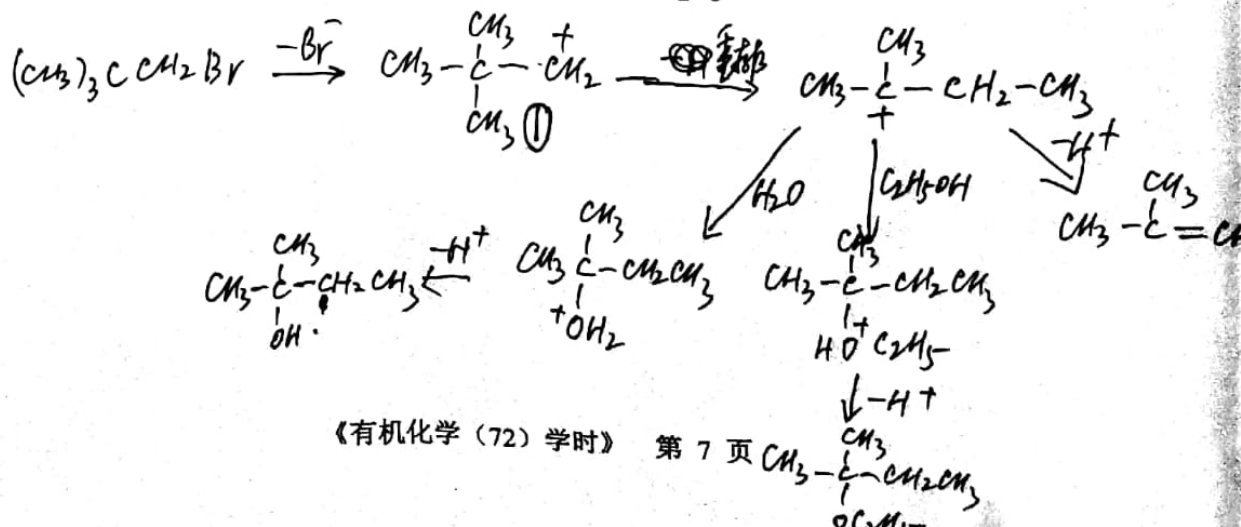 (CH3)3CCH2Br —Br⁻→ CH3—C(CH3)(CH3)—CH2⁺ ① 重排→ CH3—C⁺(CH3)—CH2—CH3
H2O C2H5OH —H⁺
CH3—C(CH3)(OH)—CH2CH3 ←—H⁺ CH3C(CH3)(⁺OH2)—CH2CH3 CH3—C(CH3)(HO⁺C2H5)—CH2CH3 CH3—C(CH3)=
—H⁺
《有机化学（72）学时》 第 7 页
CH3—C(CH3)—CH2CH3